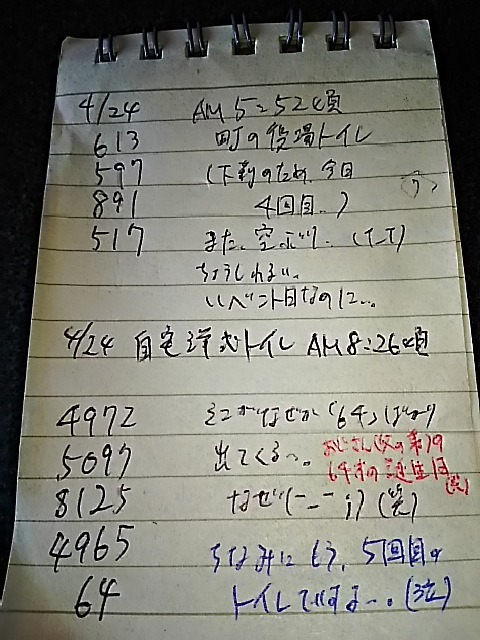 4/24 AM5:52頃
613 町の役場トイレ
597 (下剤のため、今日
891 4回目..)
517 また、空ぶり.. (T_T)
4/24 自宅洋式トイレ AM8:26頃
4972 そこがなぜか「64」ばかり
5097 出てくる..。 おじさん(父の弟)の
64才の誕生日(笑)
8125 なぜ(ーー;)(笑)
4965 ちなみにもう、5回目の
64 トイレですな..。(泣)